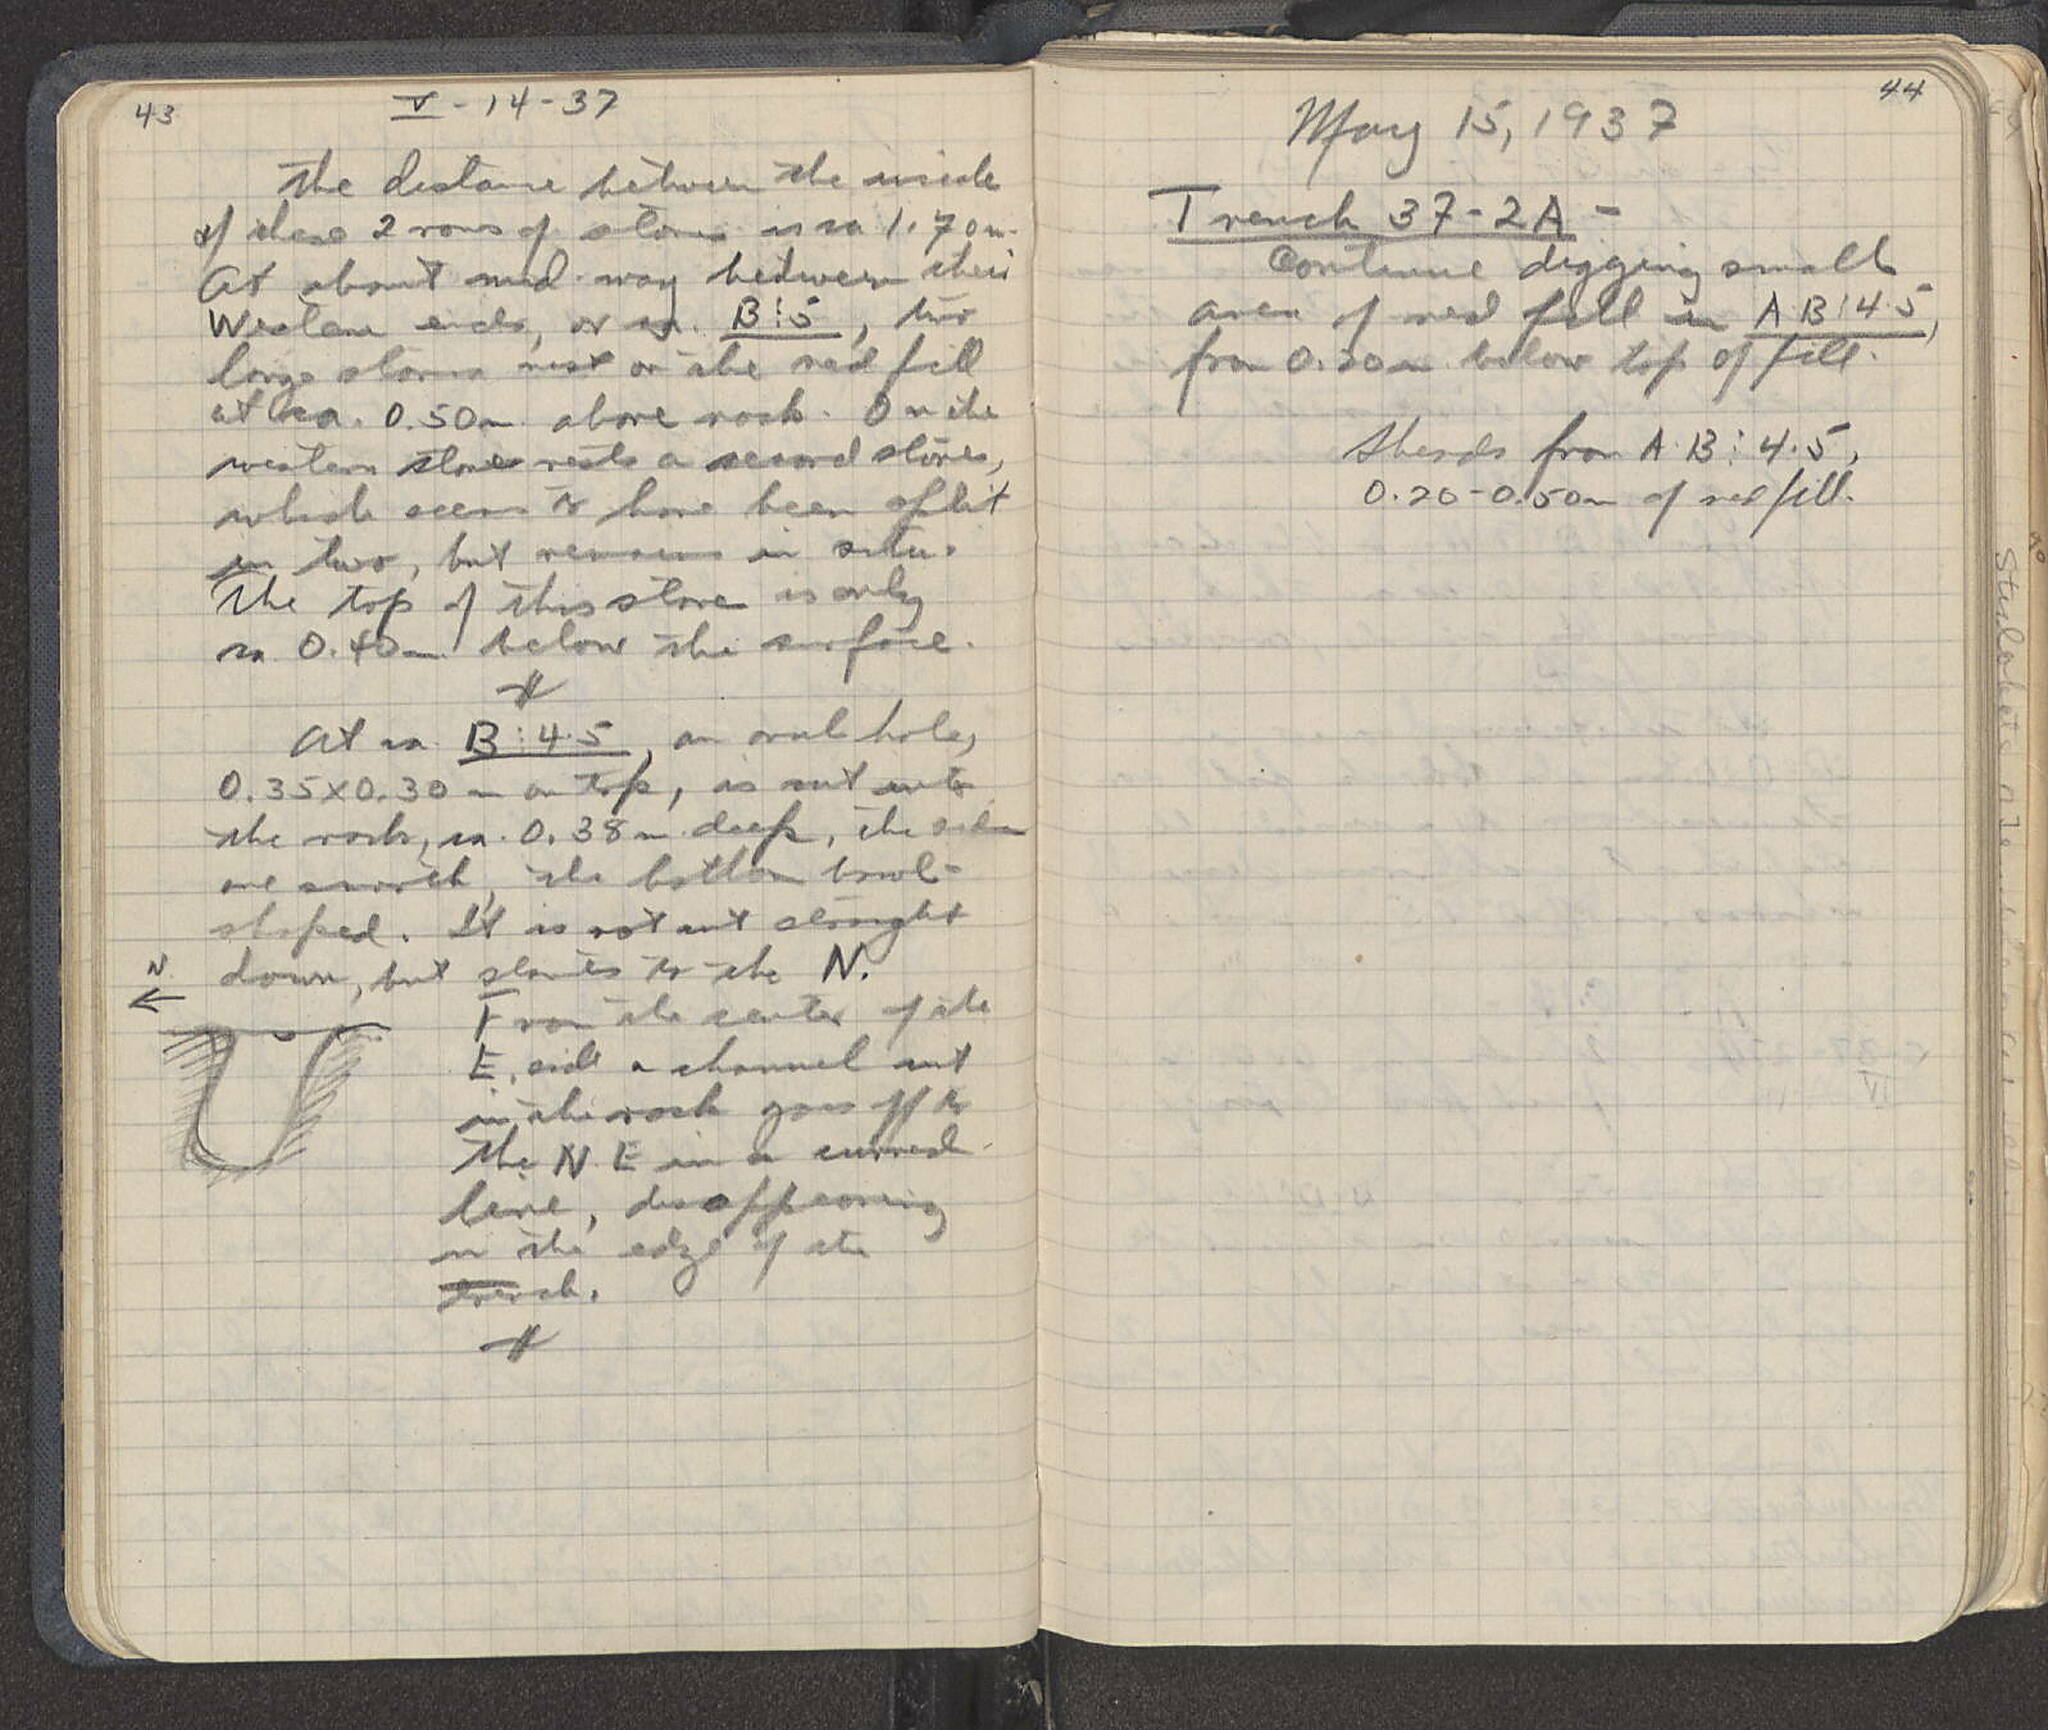 43
V-14-37
The distance between the inside
of these 2 rows of stones is ca 1.70m.
At about mid-way between their
Western ends, or ca. B:5, two
large stones rest on the red fill
at ca. 0.50m above rock. On the
western stone rests a second stones,
which seems to have been split
in two, but remains in situ.
The top of this stone is only
ca 0.40m below the surface.
At ca B:4.5, an oval hole,
0.35x0.30m on top, is cut into
the rock, ca. 0.38m deep, the sides
are smooth, the bottom bowl-
shaped. It is not cut straight
down, but slants to the N.
N
From the center of the
E. side a channel cut
in the rock goes off to
the N E in a curved
line, disappearing
in the edge of the
trench.
44
May 15, 1937
Trench 37-2A -
Continue digging small
area of red fill in A.B:4.5,
from 0.20m below top of fill.
Sherds from A.B:4.5,
0.20-0.50m of red fill.